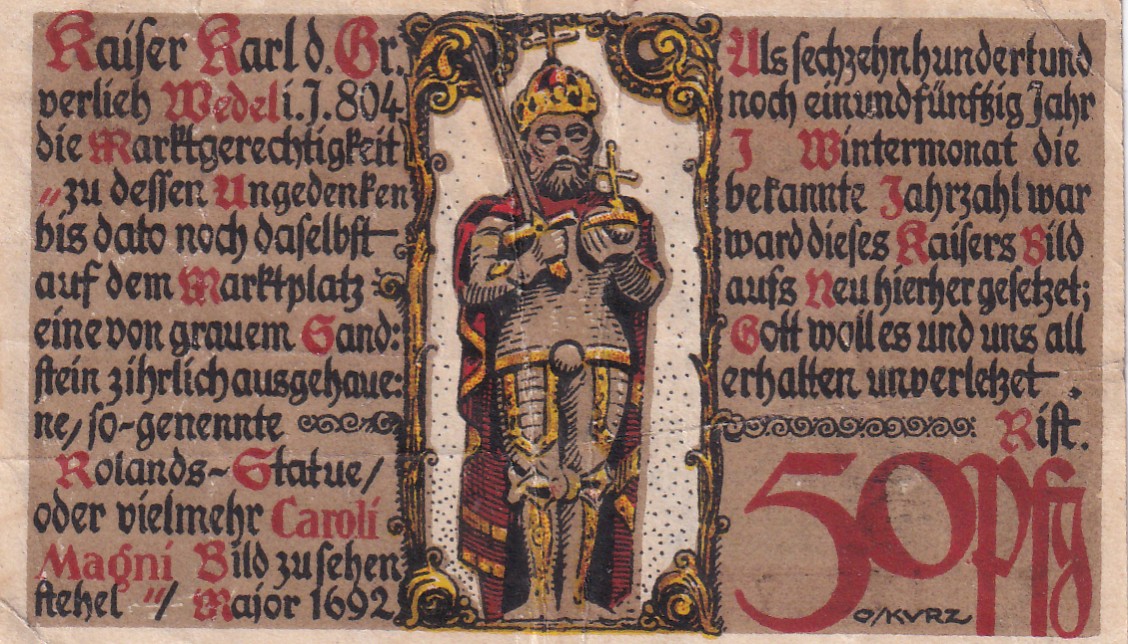 Kaiser Karl d. Gr.
verlieh Wedel i. J. 804
die Marktgerechtigkeit
"zu dessen Ungedenken
bis dato noch daselbst
auf dem Marktplatz
eine von grauem Sand:
stein zihrlich ausgehaue:
ne/ so-genennte
Rolands-Statue/
oder vielmehr Caroli
Magni Bild zu sehen
stehet"/ Major 1692
Als sechzehnhundertund
noch einundfünfzig Jahr
J Wintermonat die
bekannte Jahrzahl war
ward dieses Kaisers Bild
aufs Neu hierher gesetzet;
Gott woll es und uns all
erhalten unverletzet.
Rist.
50 Pfg
O/KVRZ